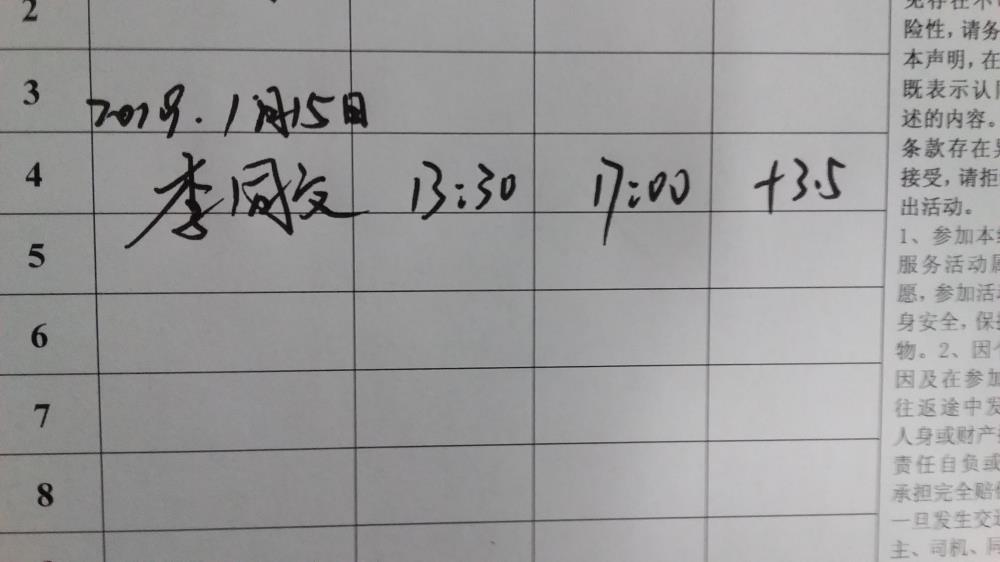 2
3 2019.1月15日
4 李同文 13:30 17:00 +3.5
5
6
7
8
险性，请务
本声明，在
既表示认
述的内容。
条款存在
接受，请拒
出活动。
1、参加本
服务活动属
愿，参加活
身安全，保
物。2、因个
因及在参加
往返途中发
人身或财产
责任自负或
承担完全赔
一旦发生交
主、司机、同